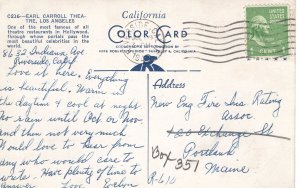 C236—EARL CARROLL THEA-
TRE, LOS ANGELES
One of the most famous of all
theatre restaurants in Hollywood,
through whose portals pass the
most beautiful celebrities in the
world.
8632 Indiana Ave
Riverside, Calif
Love it here. Everything
is beautiful. Warm in
the daytime & cool at night
No rain until Oct or Nov
and then not very much
Would love to hear from
any who would care to
write. Have plenty time to
answer. Love
California
COLOR CARD
Address
New Eng Fire Ins Rating
Assoc
Exchange St
Box 351
Portland
Maine
1 CENT 1